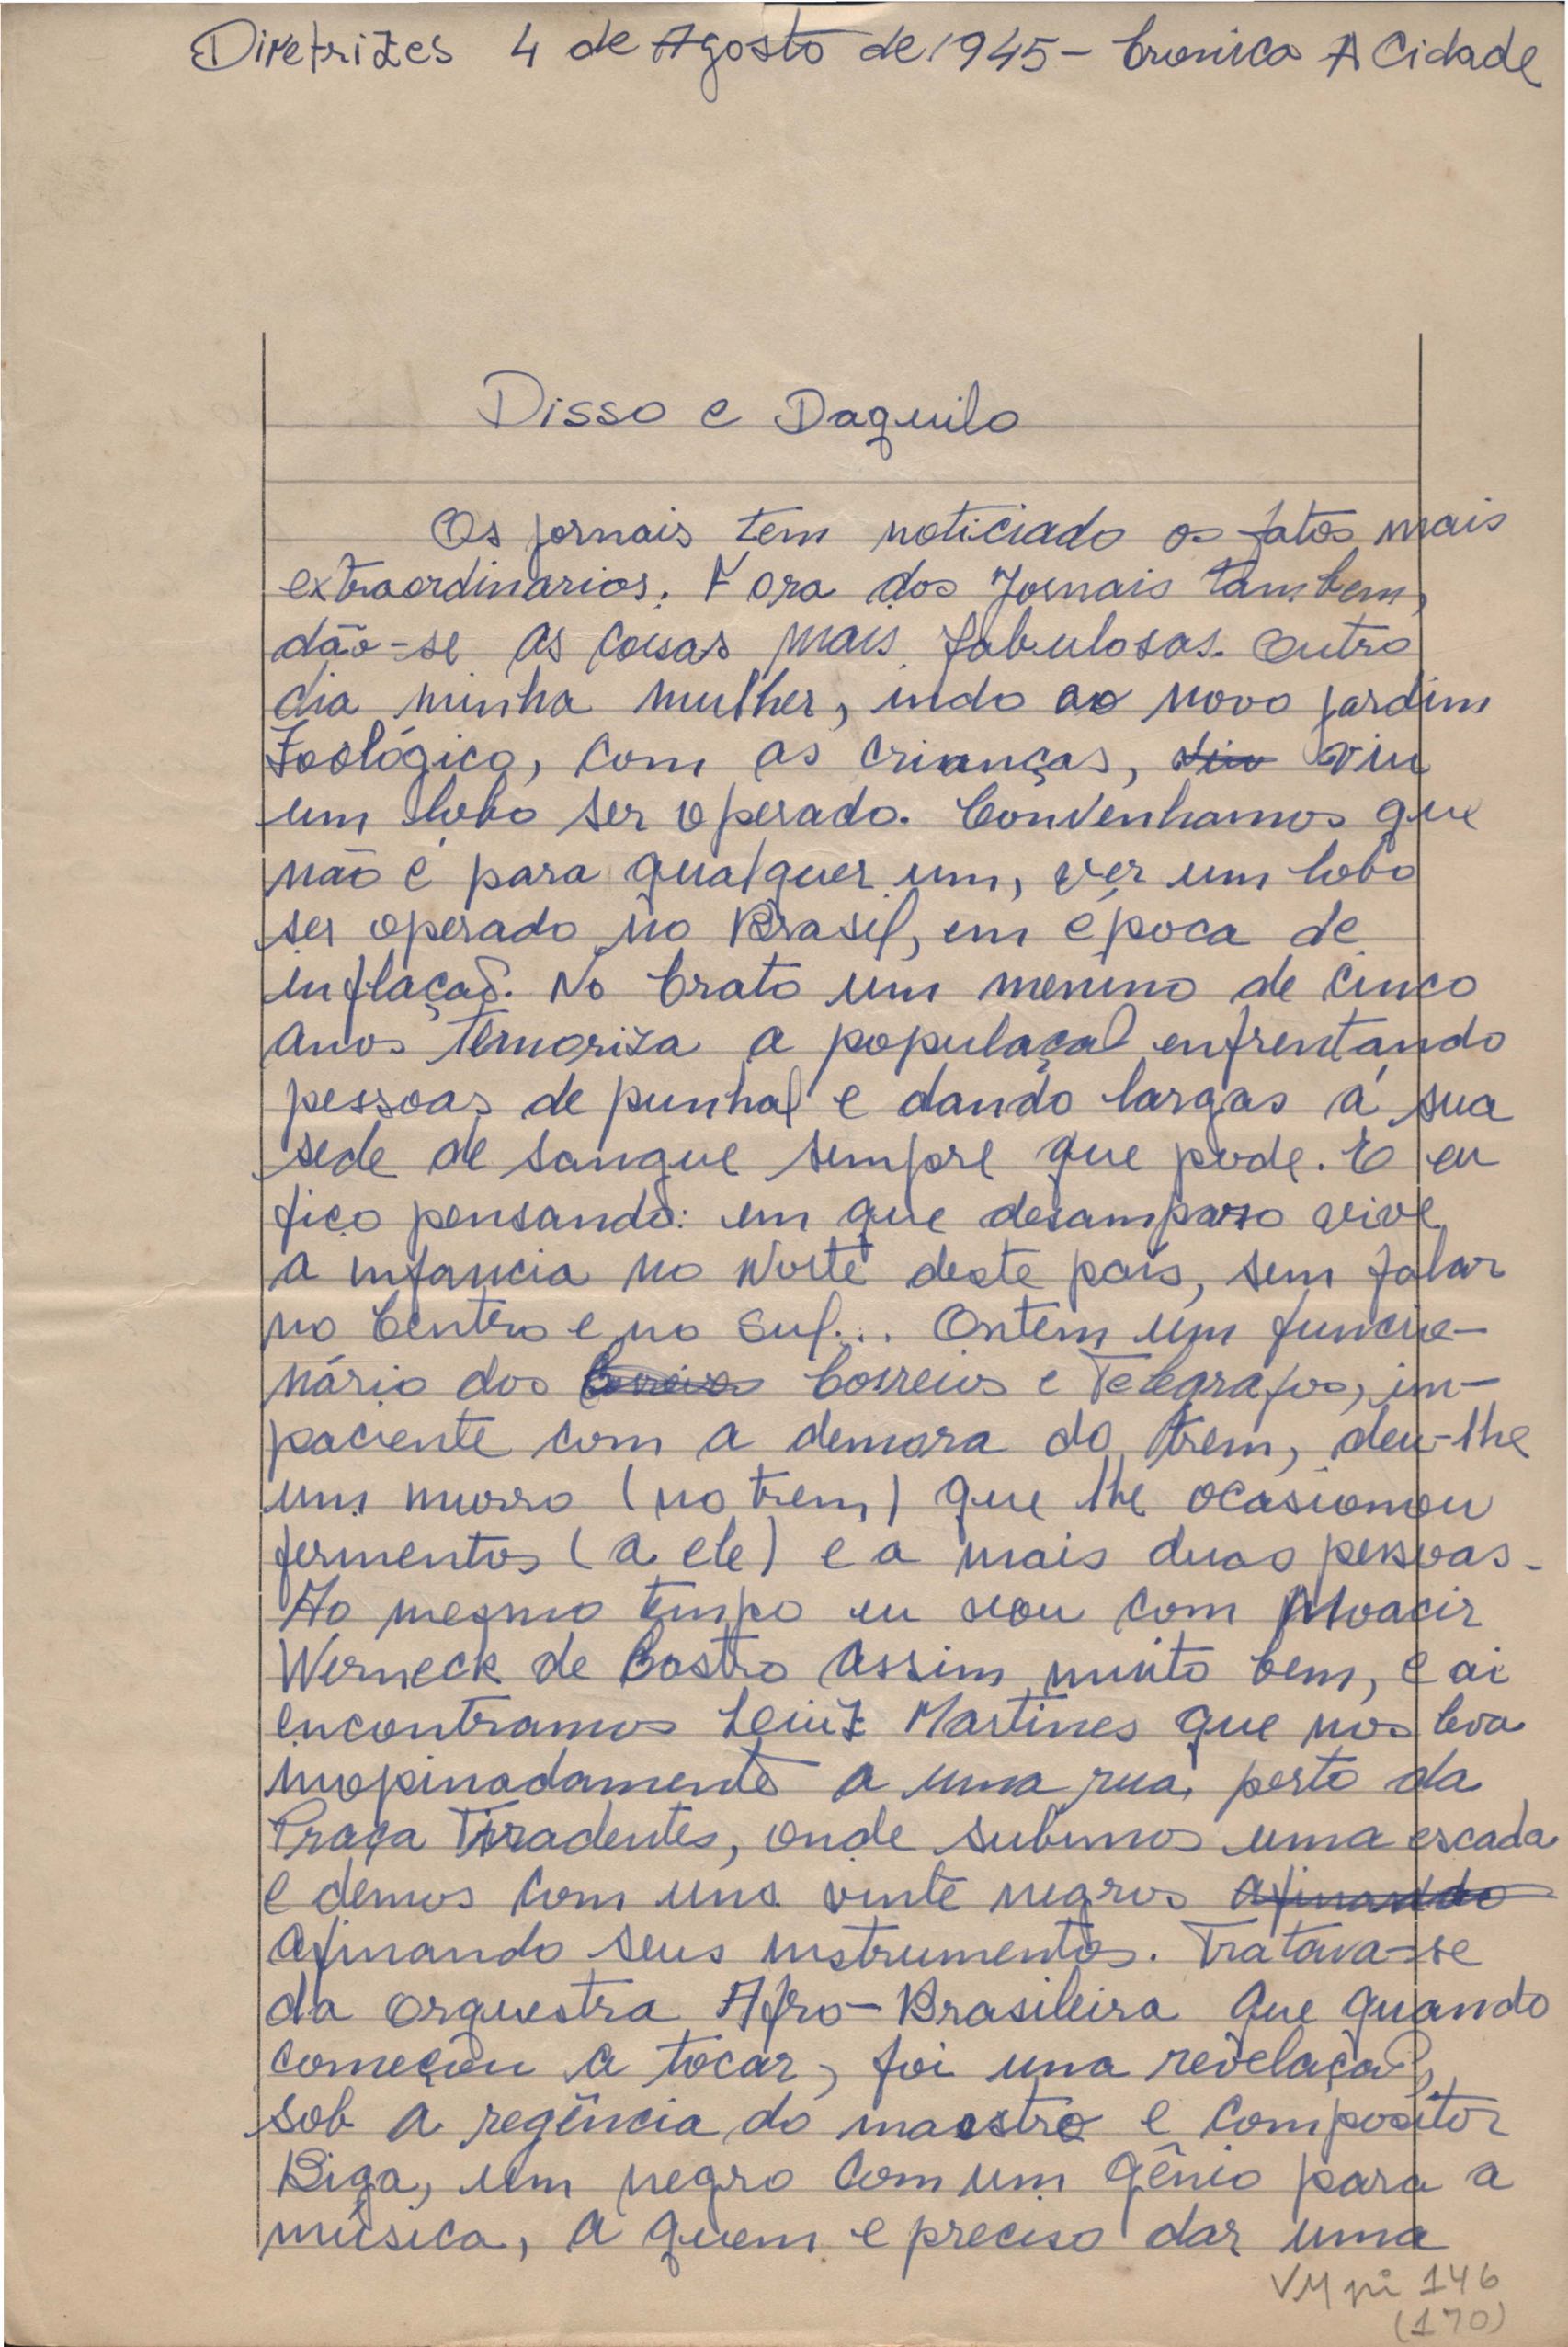 Diretrizes 4 de Agosto de 1945 - Cronica A Cidade
Disso e Daquilo
Os jornais tem noticiado os fatos mais
extraordinarios. Fora dos Jornais tambem,
dão-se as coisas mais fabulosas. Outro
dia minha mulher, indo ao novo jardim
Zoológico, com as crianças, viu
um lobo ser operado. Convenhamos que
não é para qualquer um, ver um lobo
ser operado no Brasil, em época de
inflação. No Crato um menino de cinco
anos temoriza a população enfrentando
pessoas de punhal e dando largas á sua
sede de sangue sempre que pode. E eu
fico pensando: em que desamparo vive
a infancia no Norte deste pais, sem falar
no Centro e no Sul... Ontem um funcio-
nário dos Correios e Telegrafos, im-
paciente com a demora do trem, deu-lhe
um murro (no trem) que lhe ocasionou
ferimentos (a ele) e a mais duas pessoas.
Ao mesmo tempo eu vou com Moacir
Werneck de Castro assim muito bem, e ai
encontramos Luiz Martines que nos leva
inopinadamente a uma rua, perto da
Praça Tiradentes, onde subimos uma escada
e demos com uns vinte negros afinando
afinando seus instrumentos. Tratava-se
da orquestra Afro-Brasileira que quando
começou a tocar, foi uma revelação,
sob a regência do maestro e compositor
Biga, um negro com um gênio para a
música, a quem e preciso dar uma
VM pi 146
(170)